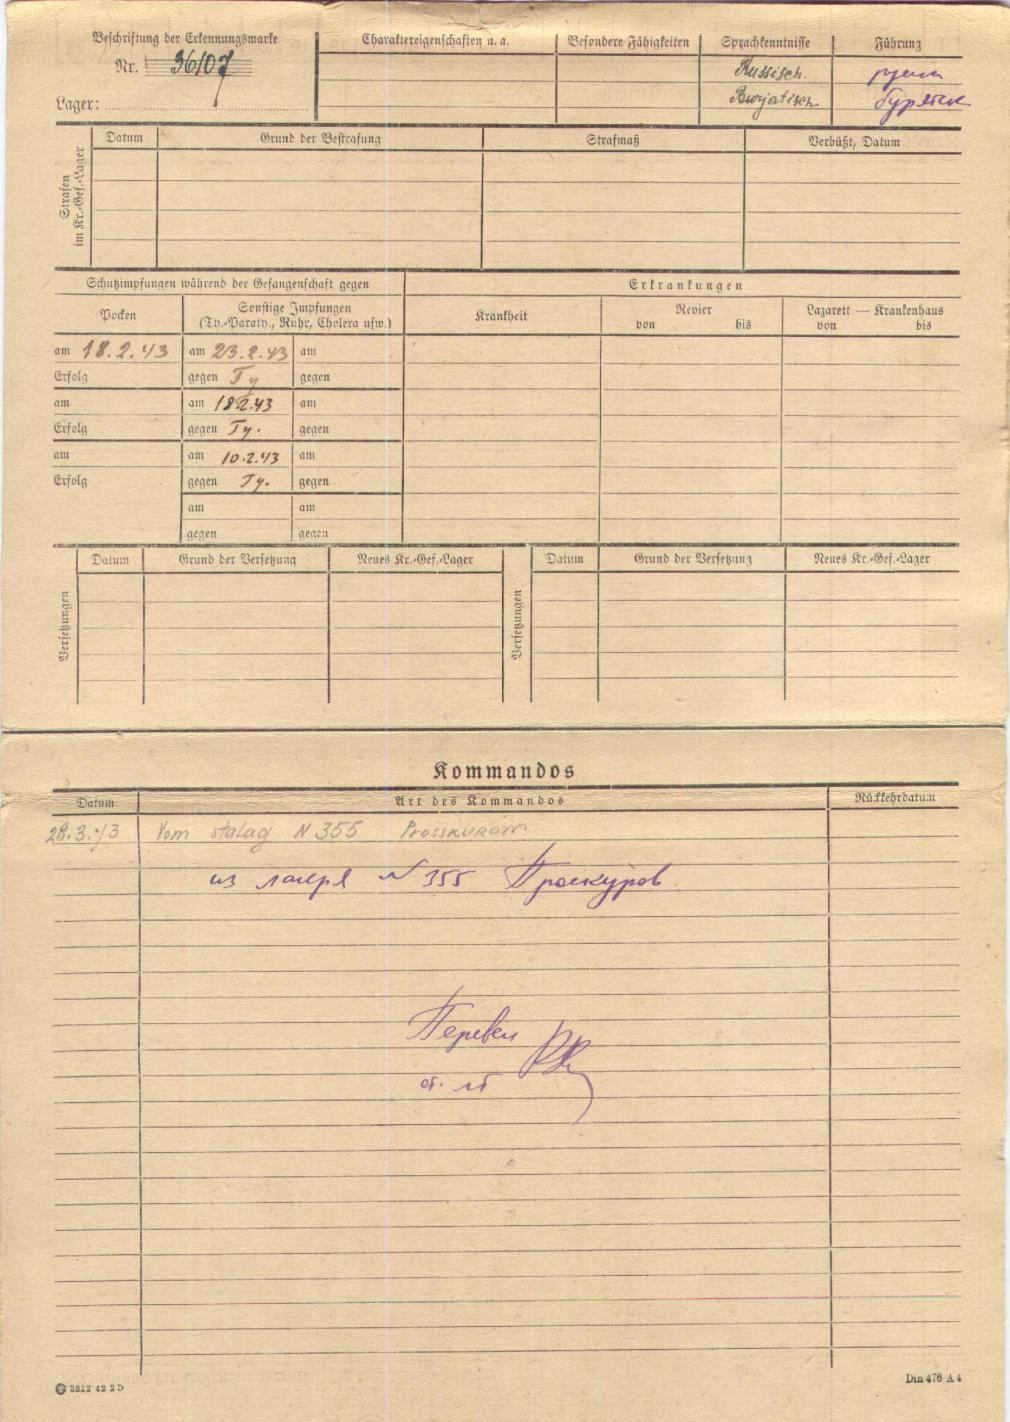 Beschriftung der Erkennungsmarke
Nr. 36107
Lager:
Charaktereigenschaften u. a.
Besondere Fähigkeiten
Sprachkenntnisse
Führung
Russisch.
Burjatisch
бурятск
Strafen im Kr.-Gef.-Lager
Datum
Grund der Bestrafung
Strafmaß
Verbüßt, Datum
Schutzimpfungen während der Gefangenschaft gegen
Erkrankungen
Pocken
Sonstige Impfungen
(Ty.-Paraty., Ruhr, Cholera usw.)
Krankheit
Revier
von bis
Lazarett — Krankenhaus
von bis
am 18.2.43 am 23.2.43 am
Erfolg gegen Ty gegen
am am 18.2.43 am
Erfolg gegen Ty. gegen
am am 10.2.43 am
Erfolg gegen Ty. gegen
am am
gegen gegen
Versetzungen
Datum
Grund der Versetzung
Neues Kr.-Gef.-Lager
Versetzungen
Datum
Grund der Versetzung
Neues Kr.-Gef.-Lager
Kommandos
Datum
Art des Kommandos
Rückkehrdatum
28.3.43 Vom stalag N 355 Prosskurow
из лагеря N 355 Проскуров
Перевел
ст. лт
3212 42 2 D
Din 476 A 4